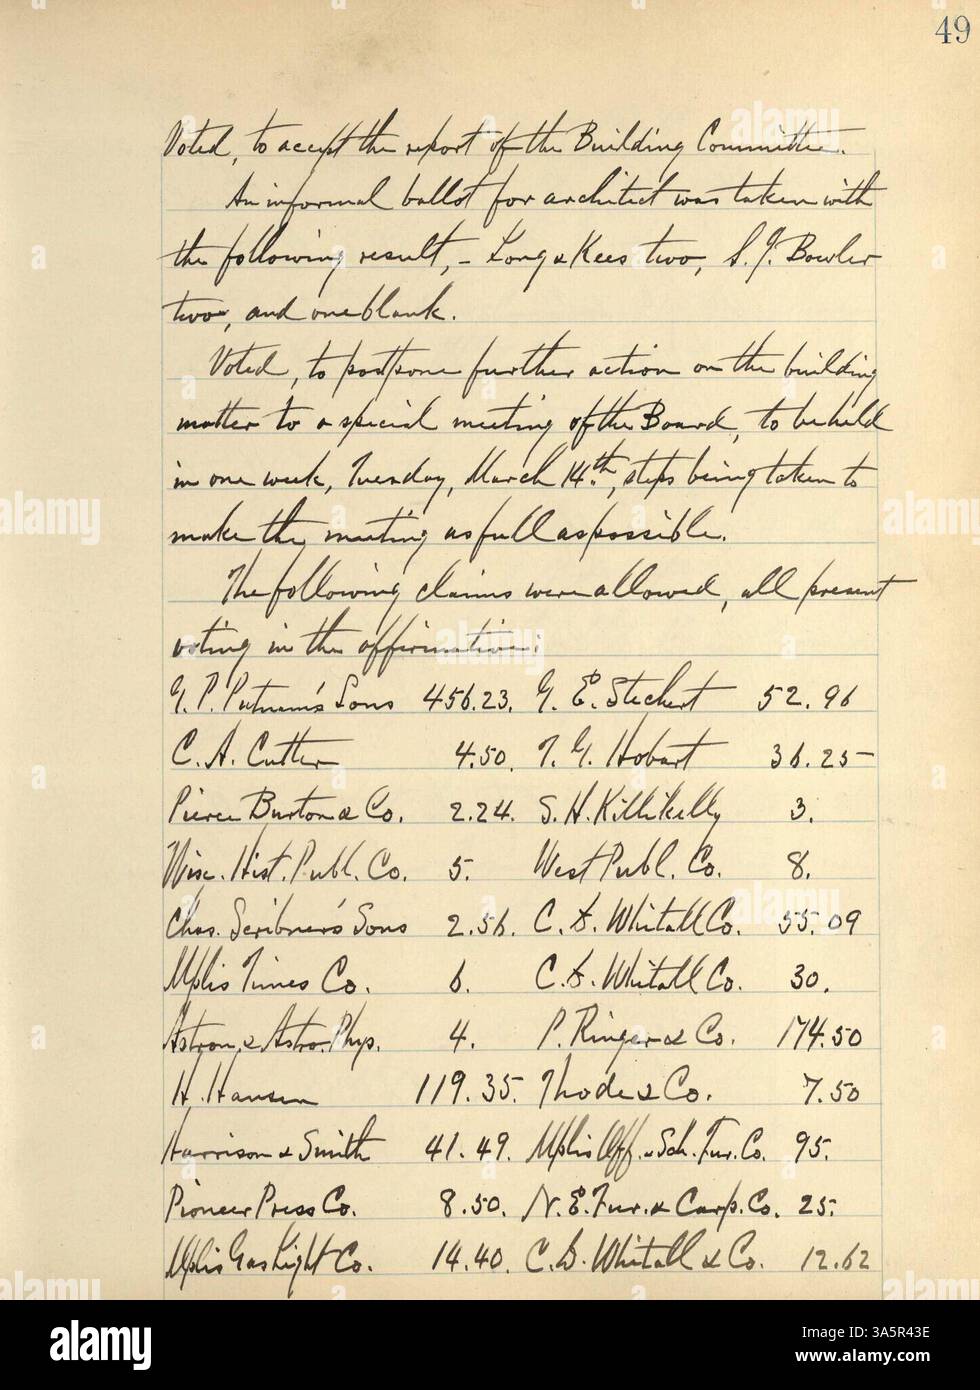 49
Voted, to accept the report of the Building Committee.
An informal ballot for architect was taken with
the following result, – Long & Kees two, S. J. Bowler
two, and one blank.
Voted, to postpone further action on the building
matter to a special meeting of the Board, to be held
in one week, Tuesday, March 14th, steps being taken to
make the meeting as full as possible.
The following claims were allowed, all present
voting in the affirmative:
G. P. Putnam's Sons 456.23. G. E. Stechert 52.96
C. A. Cutter 4.50. T. G. Hobart 36.25
Pierce Burton & Co. 2.24. S. H. Killikelly 3.
Wisc. Hist. Publ. Co. 5. West Publ. Co. 8.
Chas. Scribner's Sons 2.56. C. D. Whitall Co. 55.09
Mplis Times Co. 6. C. D. Whitall Co. 30.
Astron. & Astro. Phys. 4. P. Ringer & Co. 174.50
H. Hansen 119.35. Thode & Co. 7.50
Harrison & Smith 41.49. Mplis Off. & Sch. Fur. Co. 95.
Pioneer Press Co. 8.50. N. E. Fur. & Carp. Co. 25.
Mplis Gas Light Co. 14.40. C. D. Whitall & Co. 12.62
alamy
Image ID: 3A5R43E
www.alamy.com